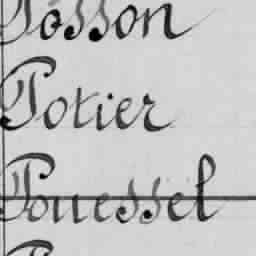 Posson
Potier
Pouessel